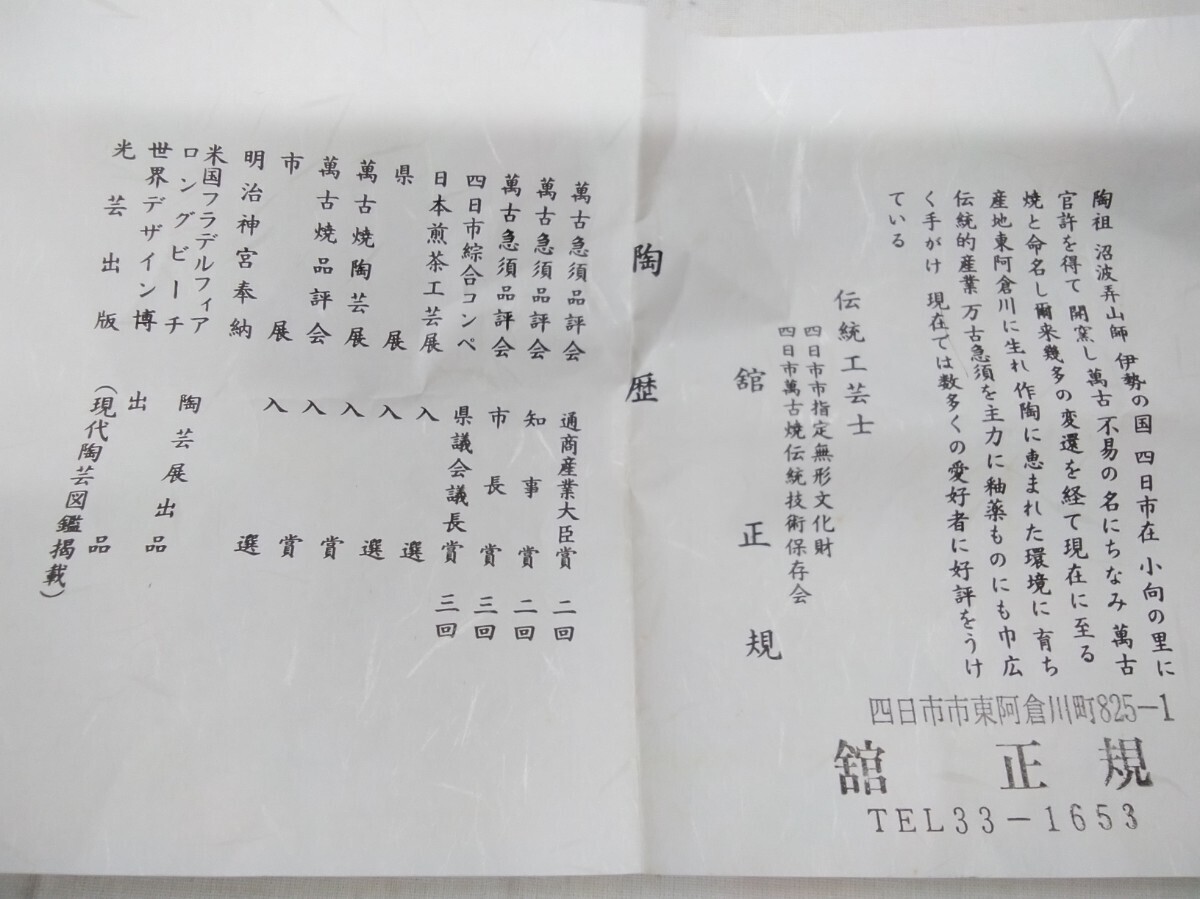 陶祖 沼波弄山師 伊勢の国 四日市在 小向の里に
官許を得て 開窯し萬古不易の名にちなみ 萬古
焼と命名し爾来幾多の変遷を経て現在に至る
産地東阿倉川に生れ 作陶に恵まれた環境に 育ち
伝統的産業 万古急須を主力に釉薬ものにも巾広
く手がけ 現在では数多くの愛好者に好評をうけ
ている
伝統工芸士
四日市市指定無形文化財
四日市萬古焼伝統技術保存会
舘 正 規
四日市市東阿倉川町825-1
舘 正 規
TEL33-1653
陶 歴
萬古急須品評会 通商産業大臣賞 二回
萬古急須品評会 知事賞 二回
萬古急須品評会 市長賞 三回
四日市綜合コンペ 県議会議長賞 三回
日本煎茶工芸展 入選
県展 入選
萬古焼陶芸展 入賞
萬古焼品評会 入賞
市展 入選
明治神宮奉納
米国フラデルフィア 陶芸展出品
ロングビーチ
世界デザイン博 出品
光芸出版 (現代陶芸図鑑掲載)